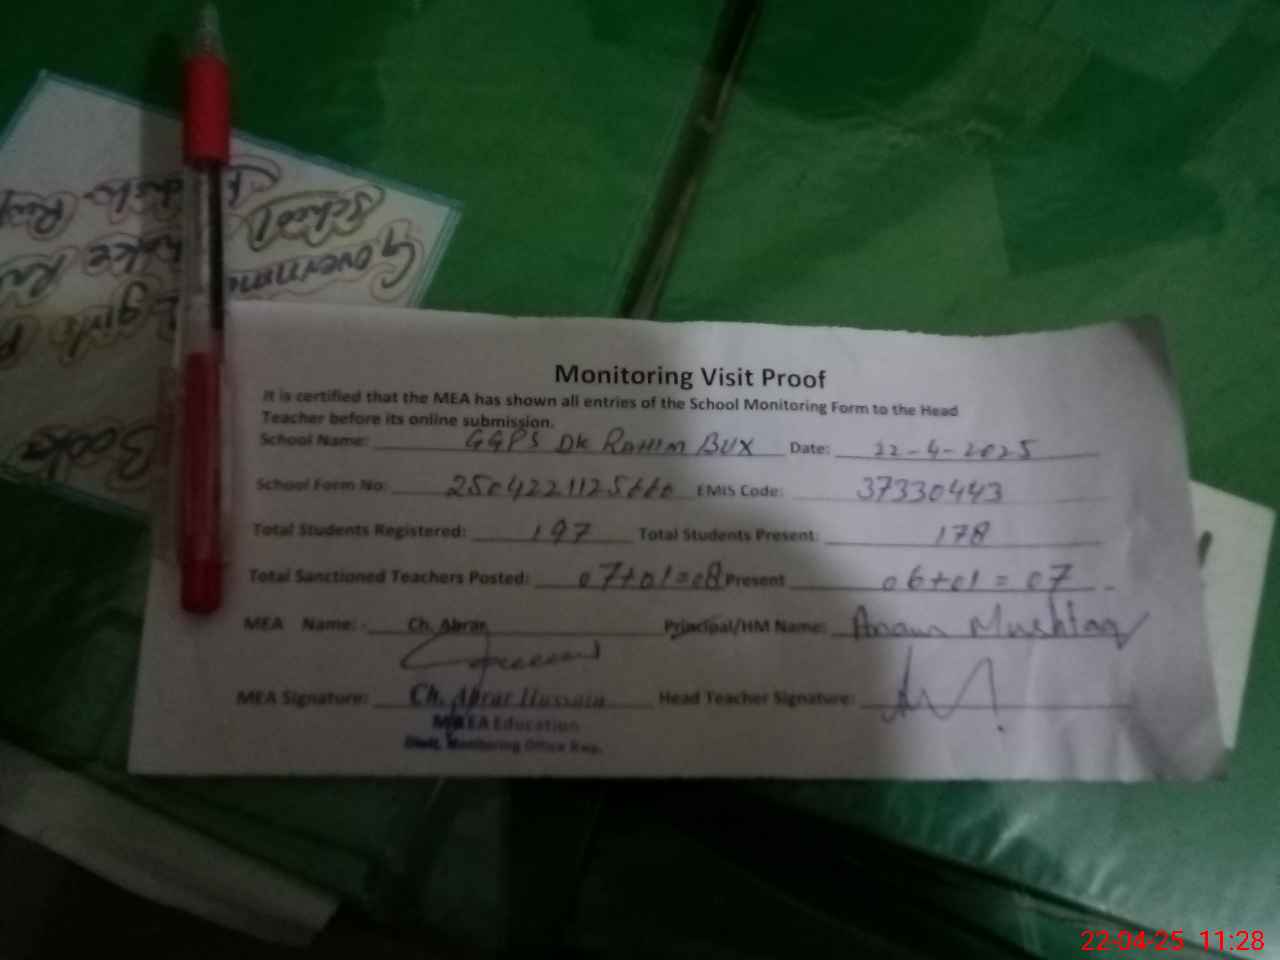 Monitoring Visit Proof
It is certified that the MEA has shown all entries of the School Monitoring Form to the Head
Teacher before its online submission.
School Name: GGPS DK RAHIM BUX Date: 22-4-2025
School Form No: EMIS Code: 37330443
Total Students Registered: 197 Total Students Present: 178
Total Sanctioned Teachers Posted: 07+01=08 Present 06+01=07
MEA Name:- Ch. Abrar Principal/HM Name: Anam Mushtaq
MEA Signature: Ch. Abrar Hussain Head Teacher Signature:
MEA Education
Distt. Monitoring Office Rwp.
School
Books
22-04-25 11:28